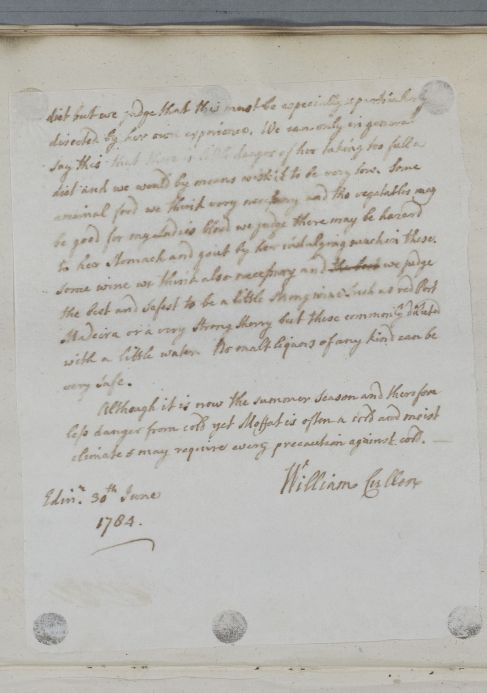 diet but we judge that this must be especially & particularly
directed by her own experience. We can only in general
say this that there is little danger of her taking too full a
diet and we would by means wish it to be very low. Some
animal food we think very necessary and tho vegetables may
be good for my Ladies blood we judge there may be hazard
to her Stomach and gout by her indulging much in these.
Some wine we think also necessary and the best we judge
the best and safest to be a little strong wine Such as red Port
Madeira or a very Strong Sherry but these commonly diluted
with a little water. No malt liquors of any kind can be
very Safe.
Although it is now the summer Season and therefore
less danger from cold yet Moffat is often a cold and moist
climate & may require every precaution against cold.
William Cullen
Edinr. 30th June
1784.